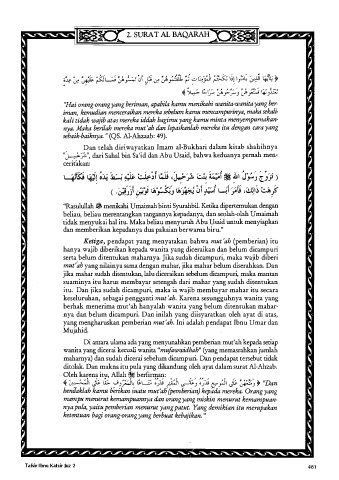 2. SURAT AL BAQARAH
﴿ يَاأَيُّهَا الَّذِينَ ءَامَنُوا إِذَا نَكَحْتُمُ الْمُؤْمِنَاتِ ثُمَّ طَلَّقْتُمُوهُنَّ مِن قَبْلِ أَن تَمَسُّوهُنَّ فَمَالَكُمْ عَلَيْهِنَّ مِنْ عِدَّةٍ
تَعْتَدُّونَهَا فَمَتِّعُوهُنَّ وَسَرِّحُوهُنَّ سَرَاحًا جَمِيلًا ﴾
"Hai orang-orang yang beriman, apabila kamu menikahi wanita-wanita yang ber-
iman, kemudian menceraikan mereka sebelum kamu mencampurinya, maka sekali-
kali tidak wajib atas mereka iddah bagimu yang kamu minta menyempurnakan-
nya. Maka berilah mereka mut'ah dan lepaskanlah mereka itu dengan cara yang
sebaik-baiknya." (QS. Al-Ahzaab: 49).
Dan telah diriwayatkan Imam al-Bukhari dalam kitab shahihnya
"شَرَحْبِيل", dari Sahal bin Sa'id dan Abu Usaid, bahwa keduanya pernah men-
ceritakan:
( تَزَوَّجَ رَسُولُ اللهِ ﷺ أُمَيْمَةَ بِنْتَ شَرَحِيلَ، فَلَمَّا أُدْخِلَتْ عَلَيْهِ بَسَطَ يَدَهُ إِلَيْهَا فَكَأَنَّهَا
كَرِهَتْ ذَلِكَ، فَأَمَرَ أَبَا أُسَيْدٍ أَنْ يُجَهِّزَهَا وَيَكْسُوَهَا ثَوْبَيْنِ أَزْرَقَيْنِ. )
"Rasulullah ﷺ menikahi Umaimah binti Syurahbil. Ketika dipertemukan dengan
beliau, beliau merentangkan tangannya kepadanya, dan seolah-olah Umaimah
tidak menyukai hal itu. Maka beliau menyuruh Abu Usaid untuk menyiapkan
dan memberikan kepadanya dua pakaian berwarna biru."
Ketiga, pendapat yang menyatakan bahwa mut'ah (pemberian) itu
hanya wajib diberikan kepada wanita yang diceraikan dan belum dicampuri
serta belum ditentukan maharnya. Jika sudah dicampuri, maka wajib diberi
mut'ah yang nilainya sama dengan mahar, jika mahar belum diserahkan. Dan
jika mahar sudah ditentukan, lalu diceraikan sebelum dicampuri, maka mantan
suaminya itu harus membayar setengah dari mahar yang sudah ditentukan
itu. Dan jika sudah dicampuri, maka ia wajib membayar mahar itu secara
keseluruhan, sebagai pengganti mut'ah. Karena sesungguhnya wanita yang
berhak menerima mut'ah hanyalah wanita yang belum ditentukan mahar-
nya dan belum dicampuri. Dan inilah yang diisyaratkan oleh ayat di atas,
yang mengharuskan pemberian mut'ah. Ini adalah pendapat Ibnu Umar dan
Mujahid.
Di antara ulama ada yang menyunahkan pemberian mut'ah kepada setiap
wanita yang dicerai kecuali wanita "mufawwidhah" (yang memasrahkan jumlah
maharnya) dan sudah dicerai sebelum dicampuri. Dan pendapat tersebut tidak
ditolak. Dan makna itu pula yang dikandung oleh ayat dalam surat Al-Ahzab.
Oleh karena itu, Allah ﷻ berfirman:
﴿ وَمَتِّعُوهُنَّ عَلَى الْمُوسِعِ قَدَرُهُ وَعَلَى الْمُقْتِرِ قَدَرُهُ مَتَاعًا بِالْمَعْرُوفِ حَقًّا عَلَى الْمُحْسِنِينَ ﴾ "Dan
hendaklah kamu berikan suatu mut'ah (pemberian) kepada mereka. Orang yang
mampu menurut kemampuannya dan orang yang miskin menurut kemampuan-
nya pula, yaitu pemberian menurut yang patut. Yang demikian itu merupakan
ketentuan bagi orang-orang yang berbuat kebajikan."
Tafsir Ibnu Katsir Juz 2
481